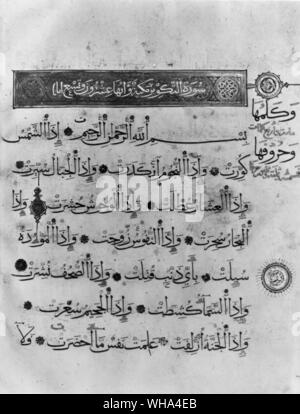 سورة التكوير مكية وآيها عشرون وتسع
بسم الله الرحمن الرحيم إذا الشمس
كورت وإذا النجوم انكدرت وإذا الجبال سيرت
وإذا العشار عطلت وإذا الوحوش حشرت وإذا
البحار سجرت وإذا النفوس زوجت وإذا الموءدة
سئلت بأي ذنب قتلت وإذا الصحف نشرت
وإذا السماء كشطت وإذا الجحيم سعرت
وإذا الجنة أزلفت علمت نفس ما أحضرت فلا
وكلمها
وحروفها
alamy
WHA4EB